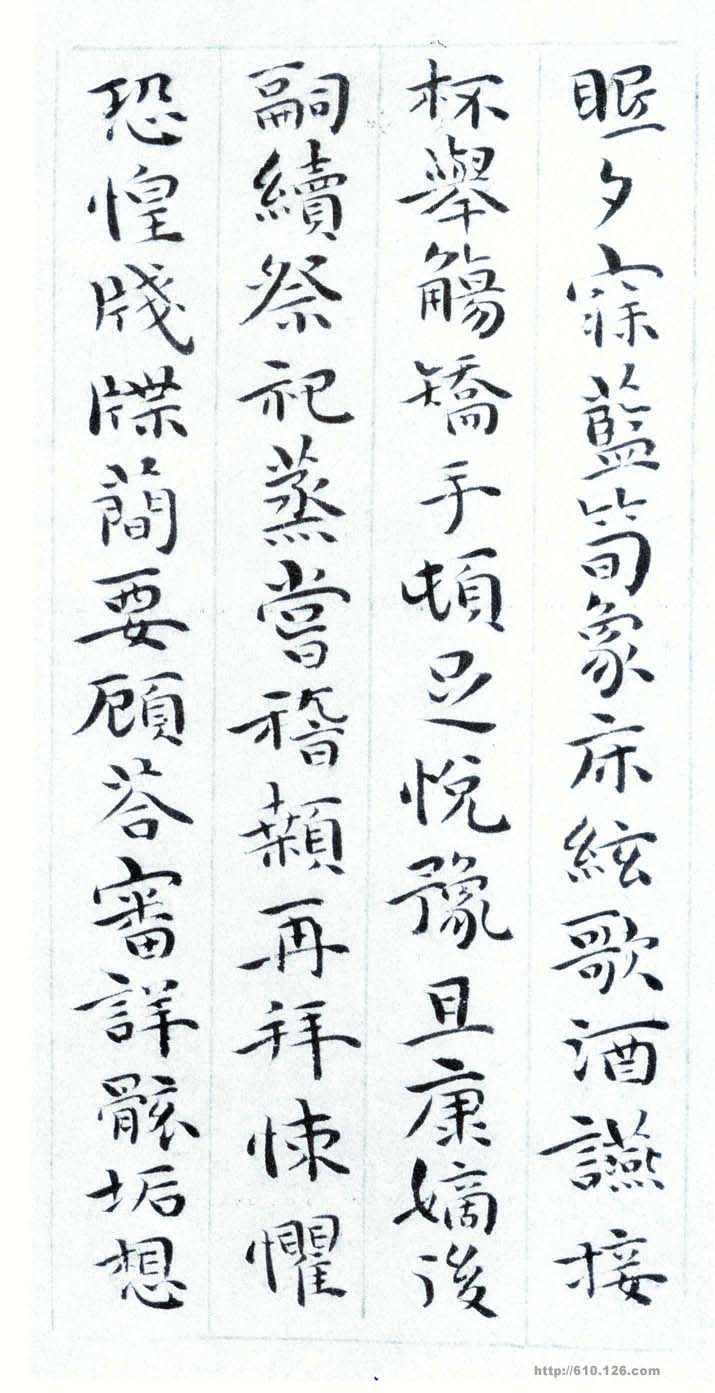 眠夕寐藍筍象床絃歌酒讌接
杯舉觴矯手頓足悅豫且康嫡後
嗣續祭祀蒸嘗稽顙再拜悚懼
恐惶牋牒蕳要顧荅審詳骸垢想
http://610.126.com